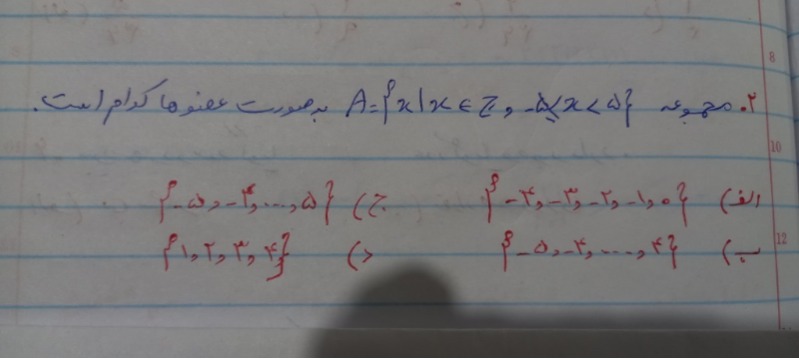 ۲. مجموعه A={x|x∈Z, -۵≤x<۵} به صورت عضوها کدام است.
الف) {-۴,-۳,-۲,-۱,۰} ج) {-۵,-۴,...,۵}
ب) {-۵,-۴,...,۴} د) {۱,۲,۳,۴}
8
10
12